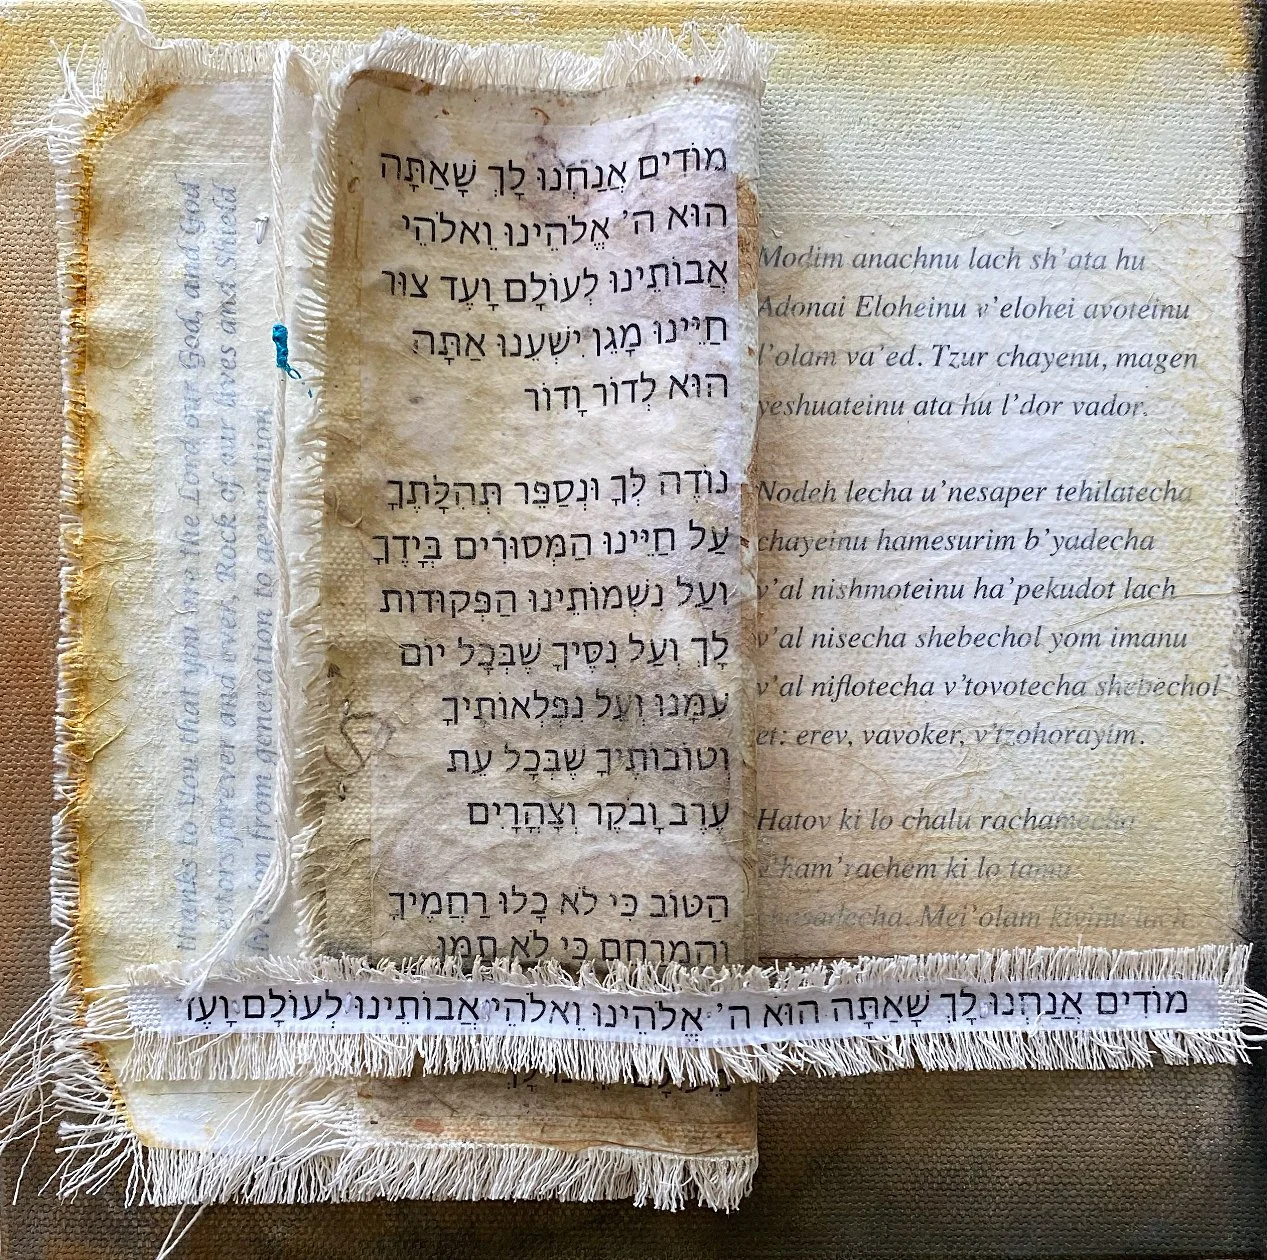 מוֹדִים אֲנַחְנוּ לָךְ שָׁאַתָּה
הוּא ה' אֱלֹהֵינוּ וֵאלֹהֵי
אֲבוֹתֵינוּ לְעוֹלָם וָעֶד צוּר
חַיֵּינוּ מָגֵן יִשְׁעֵנוּ אַתָּה
הוּא לְדוֹר וָדוֹר
נוֹדֶה לְּךָ וּנְסַפֵּר תְּהִלָּתֶךָ
עַל חַיֵּינוּ הַמְּסוּרִים בְּיָדֶךָ
וְעַל נִשְׁמוֹתֵינוּ הַפְּקוּדוֹת
לָךְ וְעַל נִסֶּיךָ שֶׁבְּכָל יוֹם
עִמָּנוּ וְעַל נִפְלְאוֹתֶיךָ
וְטוֹבוֹתֶיךָ שֶׁבְּכָל עֵת
עֶרֶב וָבֹקֶר וְצָהֳרָיִם
הַטּוֹב כִּי לֹא כָלוּ רַחֲמֶיךָ
וְהַמְרַחֵם כִּי לֹא תַמּוּ
מוֹדִים אֲנַחְנוּ לָךְ שָׁאַתָּה הוּא ה' אֱלֹהֵינוּ וֵאלֹהֵי אֲבוֹתֵינוּ לְעוֹלָם וָעֶד
Modim anachnu lach sh'ata hu
Adonai Eloheinu v'elohei avoteinu
l'olam va'ed. Tzur chayenu, magen
yeshuateinu ata hu l'dor vador.
Nodeh lecha u'nesaper tehilatecha
chayeinu hamesurim b'yadecha
v'al nishmoteinu ha'pekudot lach
v'al nisecha shebechol yom imanu
v'al niflotecha v'tovotecha shebechol
et: erev, vavoker, v'tzohorayim.
Hatov ki lo chalu rachamecha
v'ham'rachem ki lo tamu
chasadecha. Mei'olam kivinu lach
thanks to You that you are the Lord our God, and God
forever and ever. Rock of our lives and Shield
from generation to generation